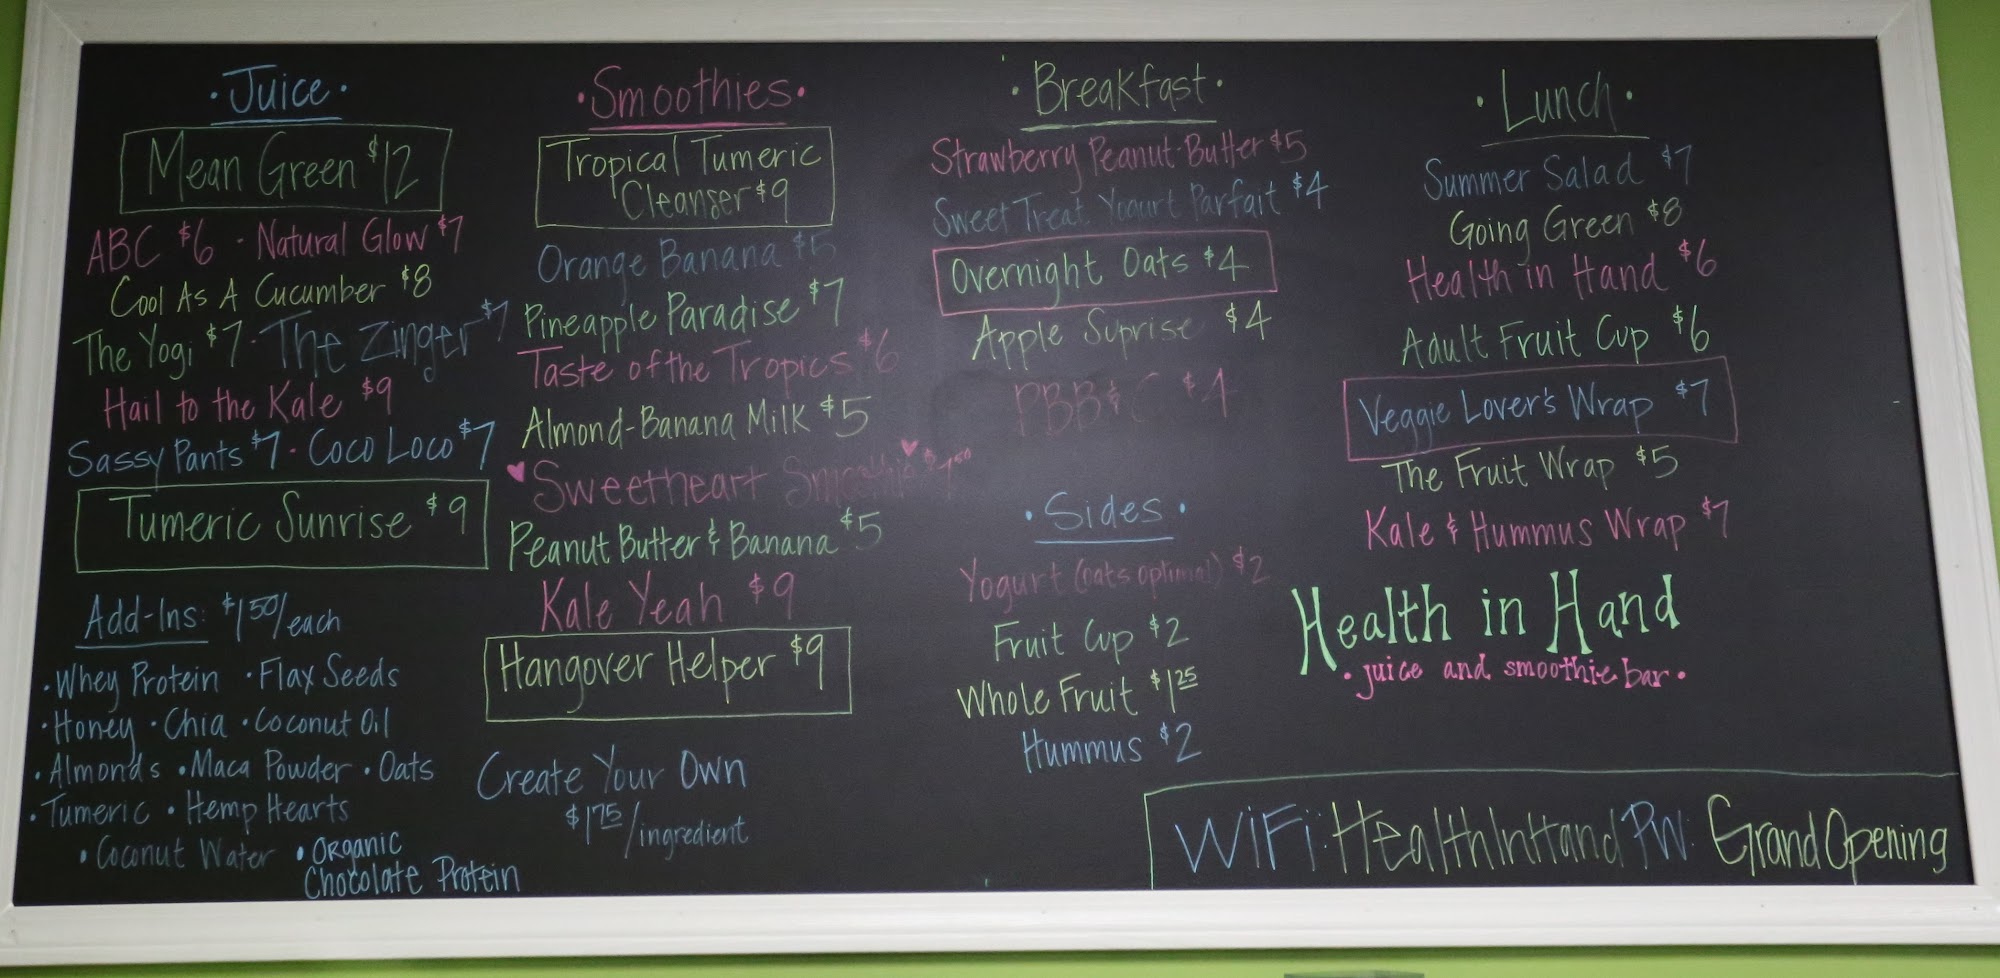 ·Juice·
Mean Green $12
ABC $6 · Natural Glow $7
Cool As A Cucumber $8
The Yogi $7 · The Zinger $7
Hail to the Kale $9
Sassy Pants $7 · Coco Loco $7
Tumeric Sunrise $9
Add-Ins: $1.50/each
·Whey Protein ·Flax Seeds
·Honey ·Chia ·Coconut Oil
·Almonds ·Maca Powder ·Oats
·Tumeric ·Hemp Hearts
·Coconut Water ·Organic
Chocolate Protein
·Smoothies·
Tropical Tumeric
Cleanser $9
Orange Banana $5
Pineapple Paradise $7
Taste of the Tropics $6
Almond-Banana Milk $5
Sweetheart Smoothie $7.50
Peanut Butter & Banana $5
Kale Yeah $9
Hangover Helper $9
Create Your Own
$1.75/ingredient
·Breakfast·
Strawberry Peanut-Butter $5
Sweet Treat Yogurt Parfait $4
Overnight Oats $4
Apple Suprise $4
PBB& $4
·Sides·
Yogurt (oats optional) $2
Fruit Cup $2
Whole Fruit $1.25
Hummus $2
·Lunch·
Summer Salad $7
Going Green $8
Health in Hand $6
Adult Fruit Cup $6
Veggie Lover's Wrap $7
The Fruit Wrap $5
Kale & Hummus Wrap $7
Health in Hand
·juice and smoothie bar·
WiFi: HealthInHand PW: GrandOpening